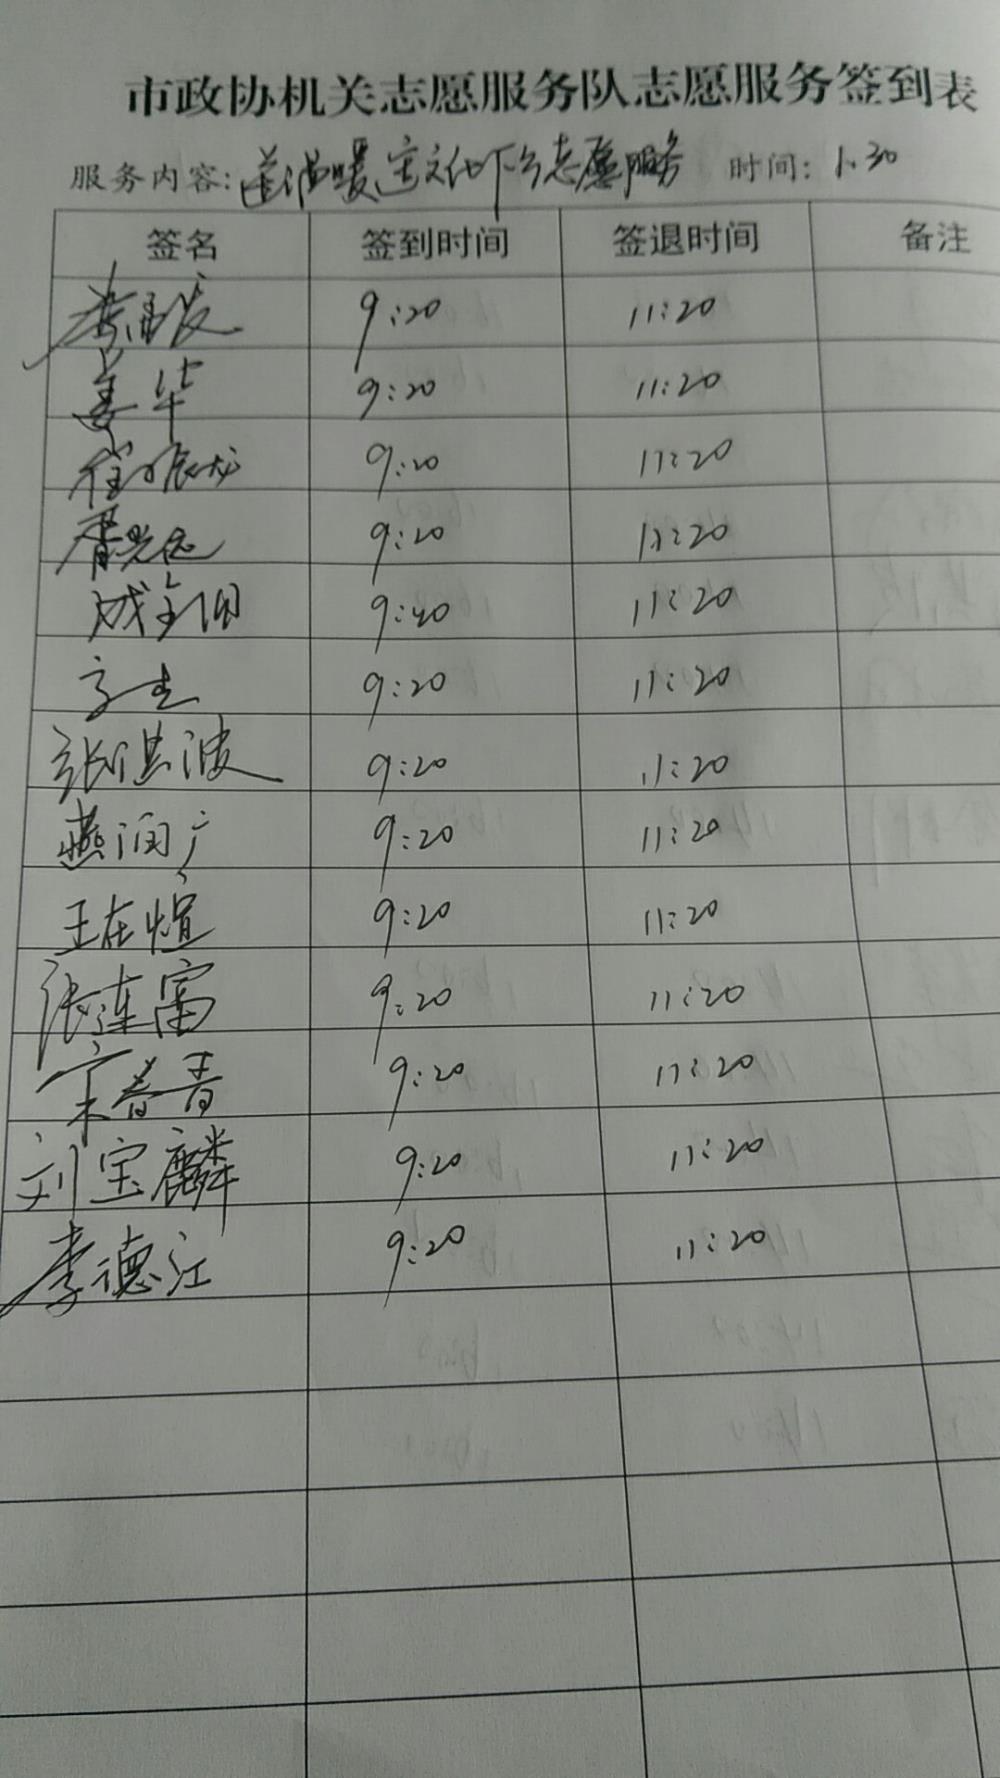 市政协机关志愿服务队志愿服务签到表
服务内容: 送温暖送文化下乡志愿服务 时间: 1.30
签名 签到时间 签退时间 备注
9:20 11:20
姜华 9:20 11:20
崔振龙 9:20 11:20
9:20 11:20
9:20 11:20
9:20 11:20
张洪波 9:20 11:20
燕润广 9:20 11:20
王在煊 9:20 11:20
张连富 9:20 11:20
宋春青 9:20 11:20
刘宝麟 9:20 11:20
李德江 9:20 11:20